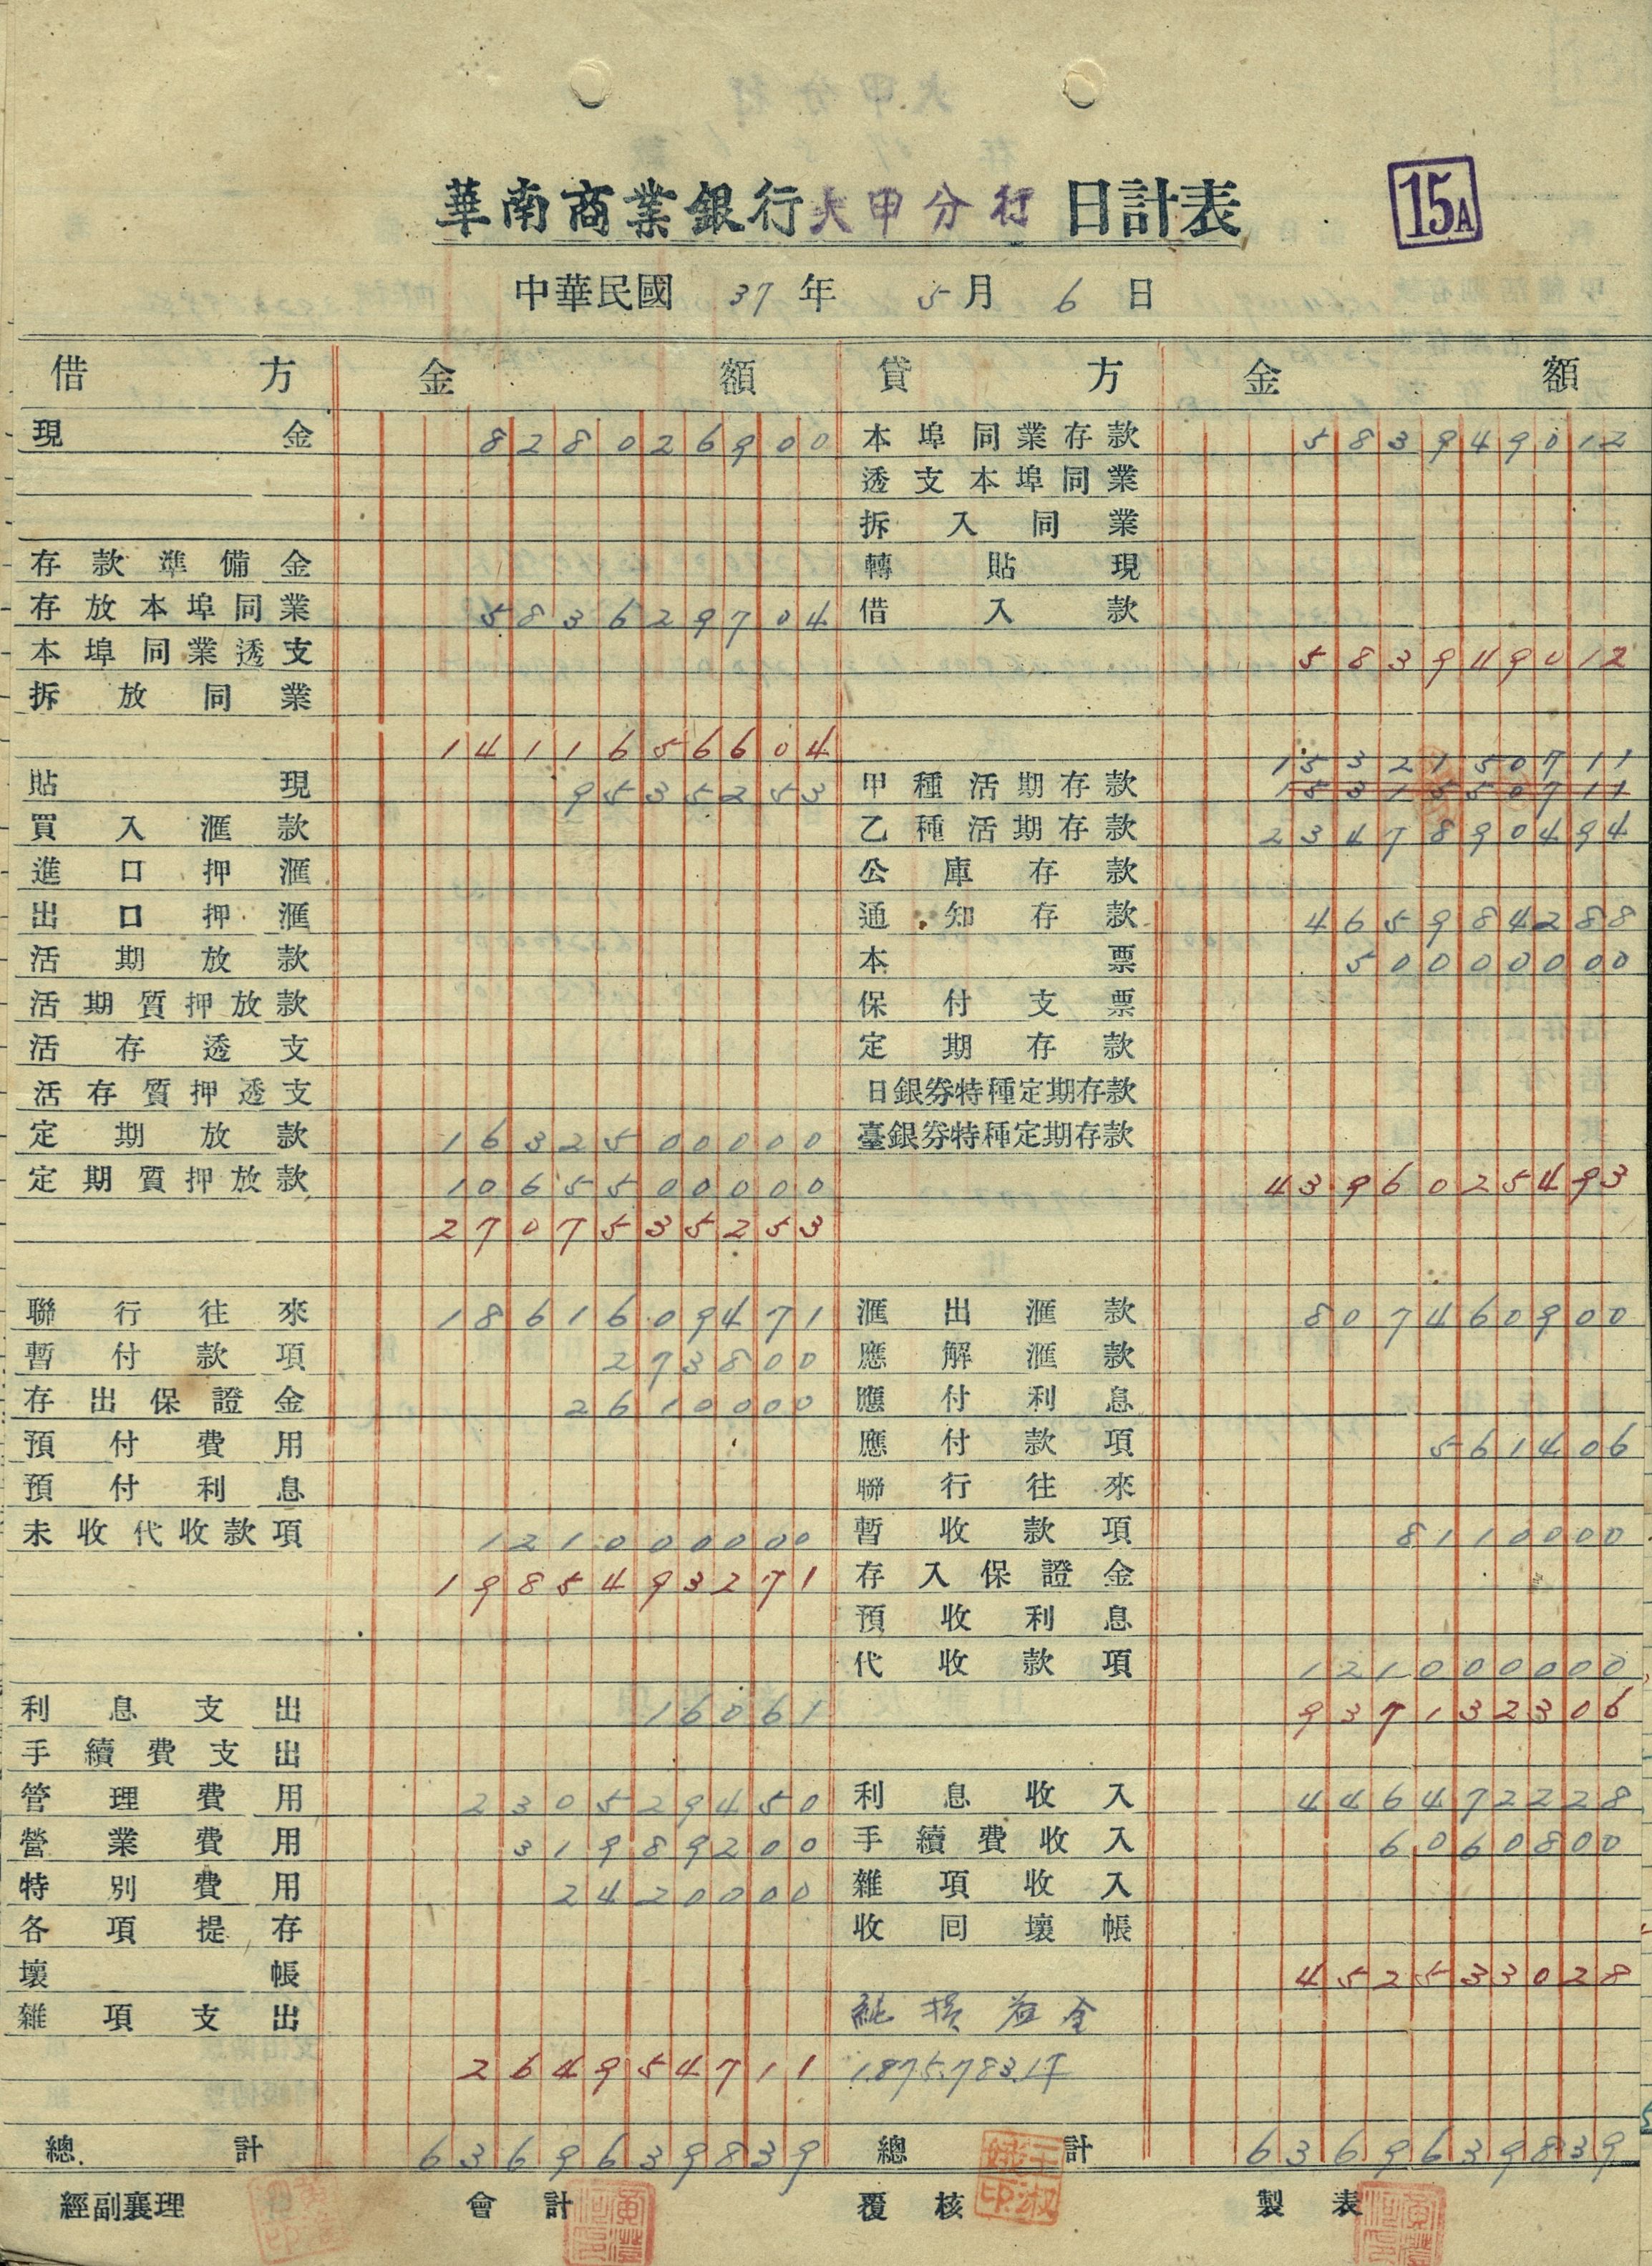 華南商業銀行大甲分行日計表
15A
中華民國 37 年 5 月 6 日
借方 金額 貸方 金額
現金 828026900 本埠同業存款 583949012
透支本埠同業
拆入同業
存款準備金 轉貼現
存放本埠同業 583629704 借入款
本埠同業透支 583949012
拆放同業
1411656604 1532150711
貼現 9535253 甲種活期存款 1531550711
買入滙款 乙種活期存款 2347890494
進口押滙 公庫存款
出口押滙 通知存款 465984288
活期放款 本票 50000000
活期質押放款 保付支票
活存透支 定期存款
活存質押透支 日銀券特種定期存款
定期放款 1632500000 臺銀券特種定期存款
定期質押放款 1065500000 4396025493
2707535253
聯行往來 1861609471 滙出滙款 807460900
暫付款項 273800 應解滙款
存出保證金 2610000 應付利息
預付費用 應付款項 561406
預付利息 聯行往來
未收代收款項 121000000 暫收款項 8110000
1985493271 存入保證金
預收利息
代收款項 121000000
利息支出 16061 937132306
手續費支出
管理費用 230529450 利息收入 446472228
營業費用 31989200 手續費收入 6060800
特別費用 2420000 雜項收入
各項提存 收回壞帳
壞帳 452533028
雜項支出 純損益金
264954711 1.875.783.17
總計 6369639839 總計 6369639839
經副襄理 會計 覆核 製表
王淑娥印